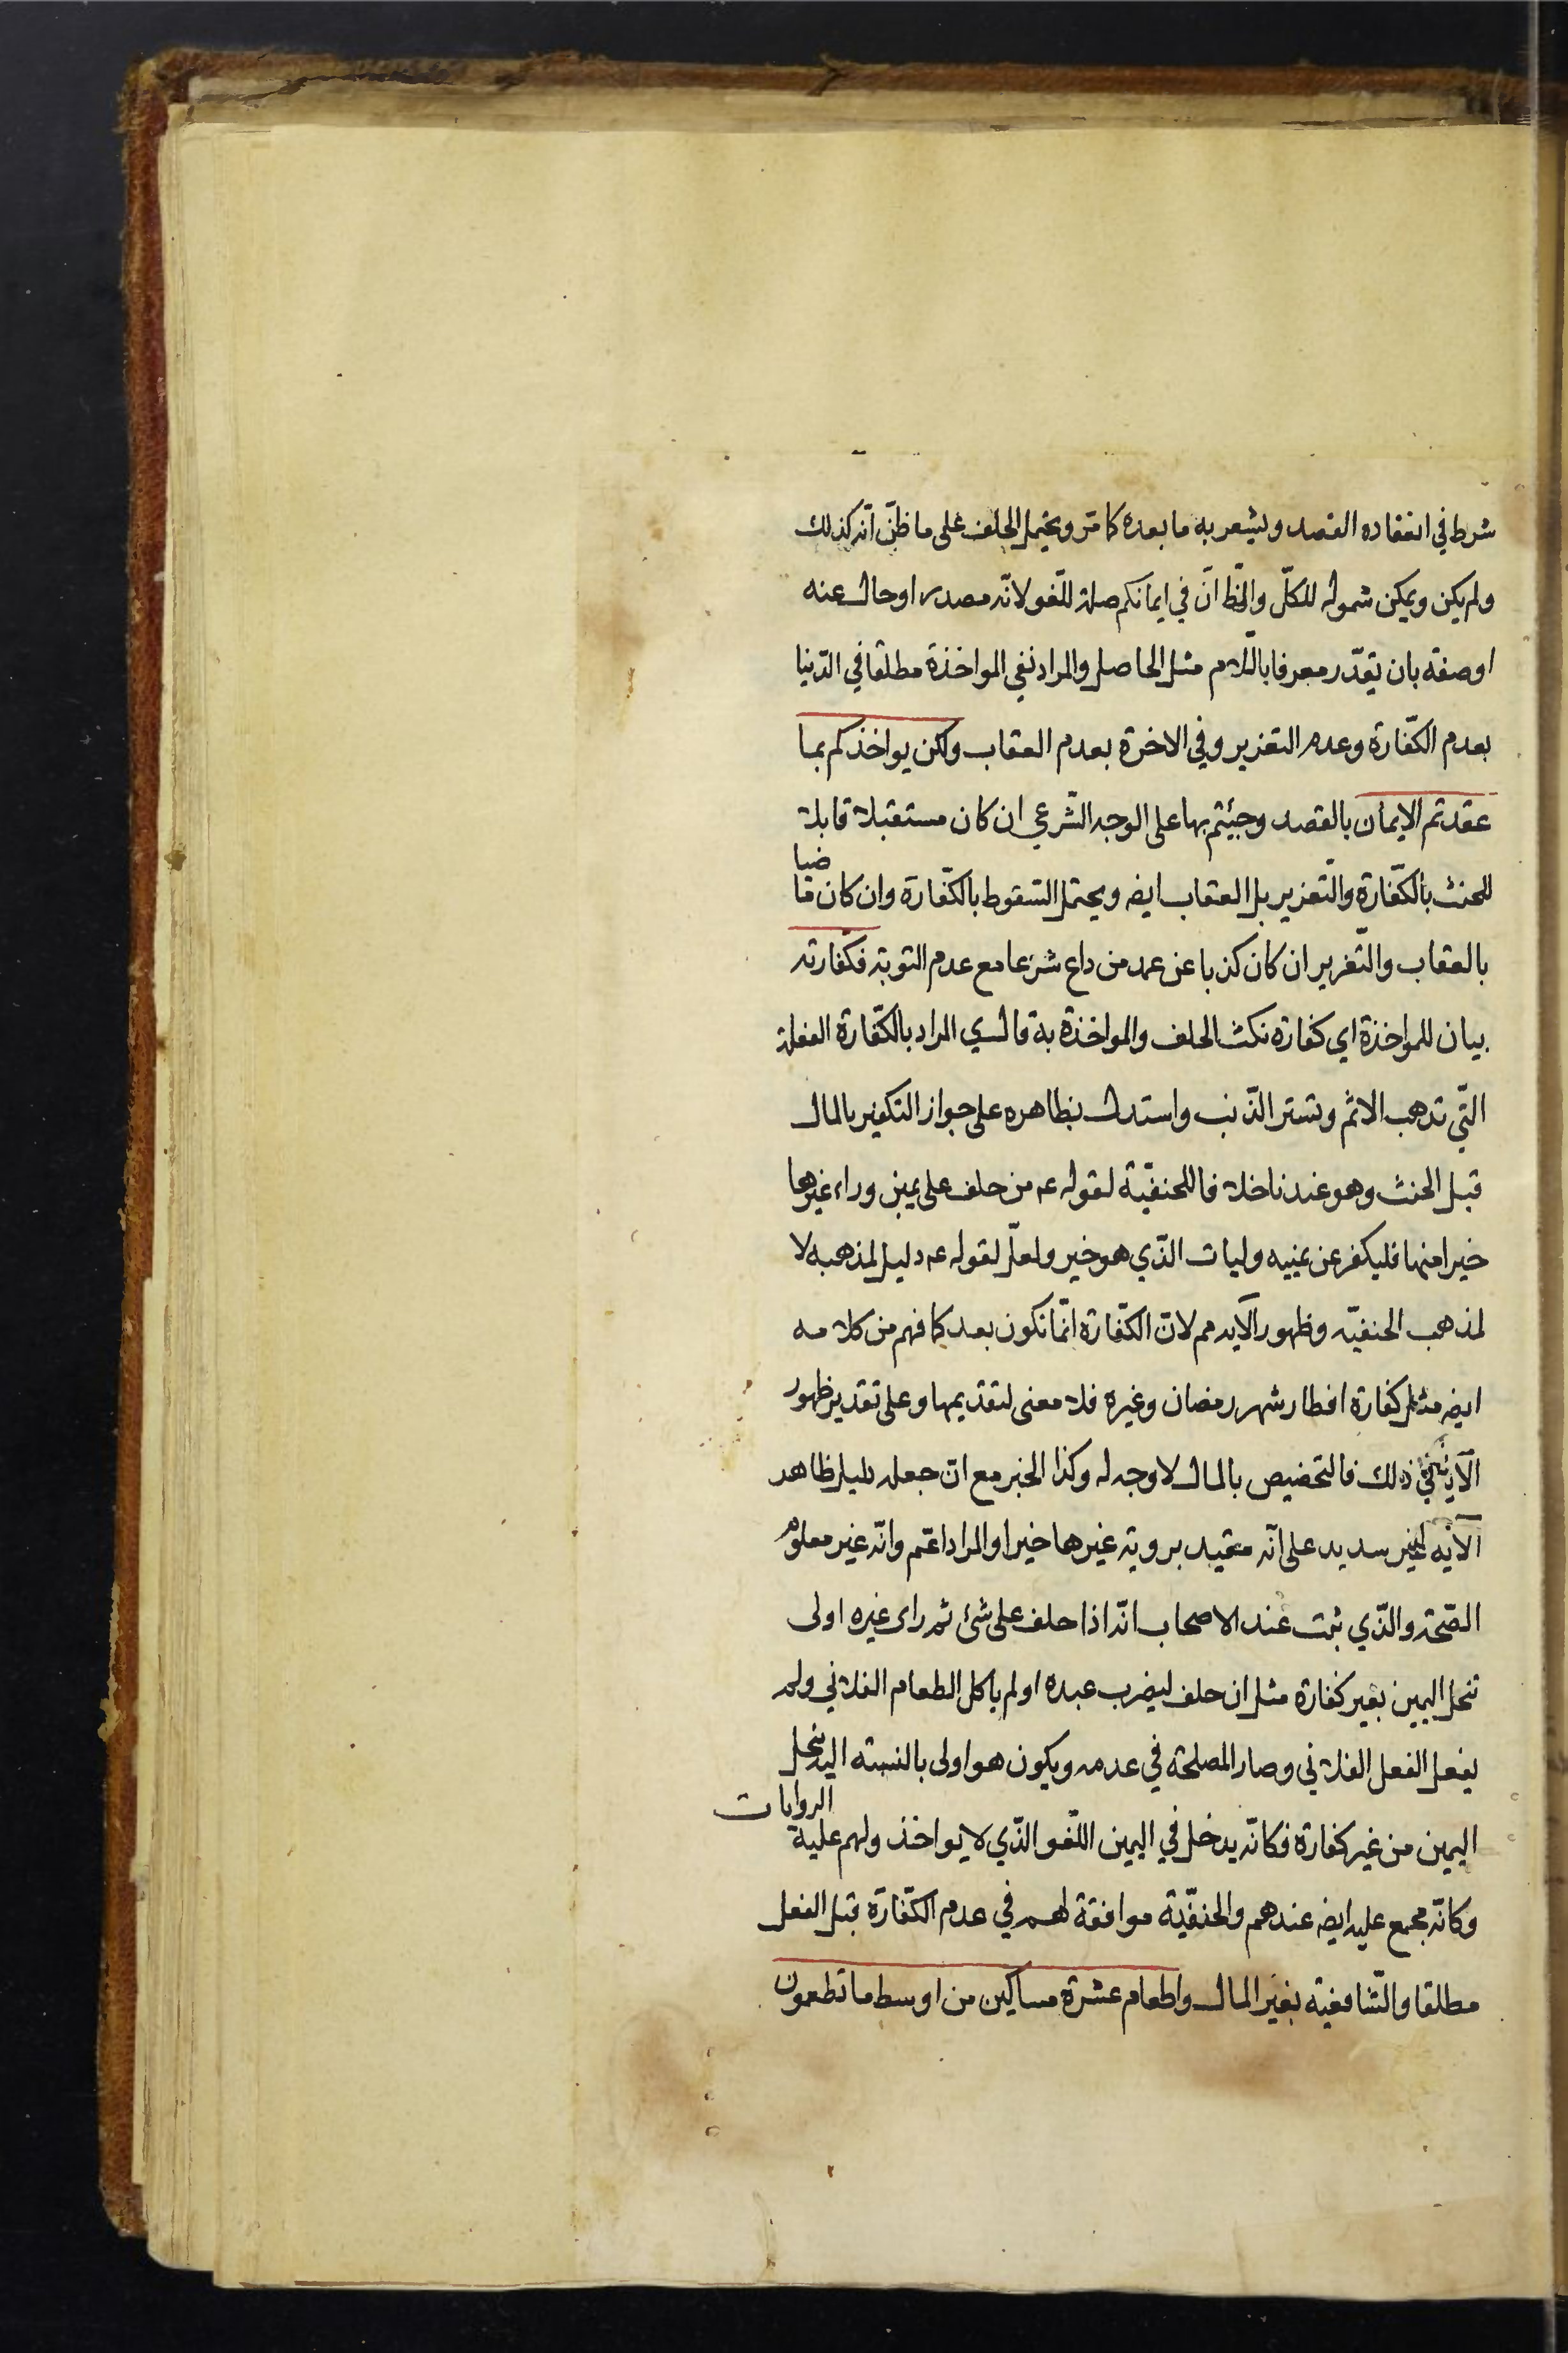 شرط في انعقاده القصد ويشعر به ما بعده كما مر ويحتمل الحلف على ما ظنّ انّه كذلك
ولم يكن ويمكن شموله للكلّ والظّ انّ في ايمانكم صلة للّغو لانّه مصدر او حال عنه
او صفته بان يقدّر معرفا باللّام مثل الحاصل والمراد نفي المواخذة مطلقا في الدّنيا
بعدم الكفّارة وعدم التعزير وفي الاخرة بعدم العقاب ولكن يواخذكم بما
عقدتم الايمان بالقصد وجئتم بها على الوجه الشّرعي ان كان مستقبلا قابلا
للحنث بالكفّارة والتّعزير بل العقاب ايضه ويحتمل السّقوط بالكفّارة وان كان ما ضيا
بالعقاب والتّعزير ان كان كذبا عن عمد من داع شرعا مع عدم التوبة فكفّارته
بيان للمواخذة اي كفارة نكث الحلف والمواخذة به قال سي المراد بالكفّارة الفعلة
التّي تذهب الاثم وتستر الذّنب واستدل بظاهره على جواز التكفير بالمال
قبل الحنث وهو عندنا خلافا للحنفيّة لقوله عم من حلف على يمين وراء غيرها
خيرا منها فليكفر عن يمينه وليات الذّي هو خير ولعلّ لقوله عم دليل لمذهبه لا
لمذهب الحنفيّه وظهور الآيه مم لانّ الكفّارة انّما تكون بعد كما فهم من كلامه
ايضه مثل كفارة افطار شهر رمضان وغيره فلا معنى لتقديمها وعلى تقدير ظهور
الآية في ذلك فالتخصيص بالمال لا وجه له وكذا الخبر مع انّ جعله دليل ظاهر
الآيه غير سديد على انّه مقيد بروية غيرها خيرا والمراد اعمّ وانّه غير معلوم
الصّحة والذّي ثبت عند الاصحاب انّه اذا حلف على شئ ثم راى غيره اولى
تنحل اليمين بغير كفارة مثل ان حلف ليضرب عبده او لم ياكل الطعام الفلاني ولم
يفعل الفعل الفلاني وصار المصلحة في عدمه ويكون هو اولى بالنسبته اليه ينحل
اليمين من غير كفارة فكانّه يدخل في اليمين اللّغو الذّي لا يواخذ ولهم عليه الروايات
وكانّه مجمع عليه ايضه عندهم والحنفيّة موافقة لهم في عدم الكفّارة قبل الفعل
مطلقا والشّافعيه بغير المال واطعام عشرة مساكين من اوسط ما تطعمون